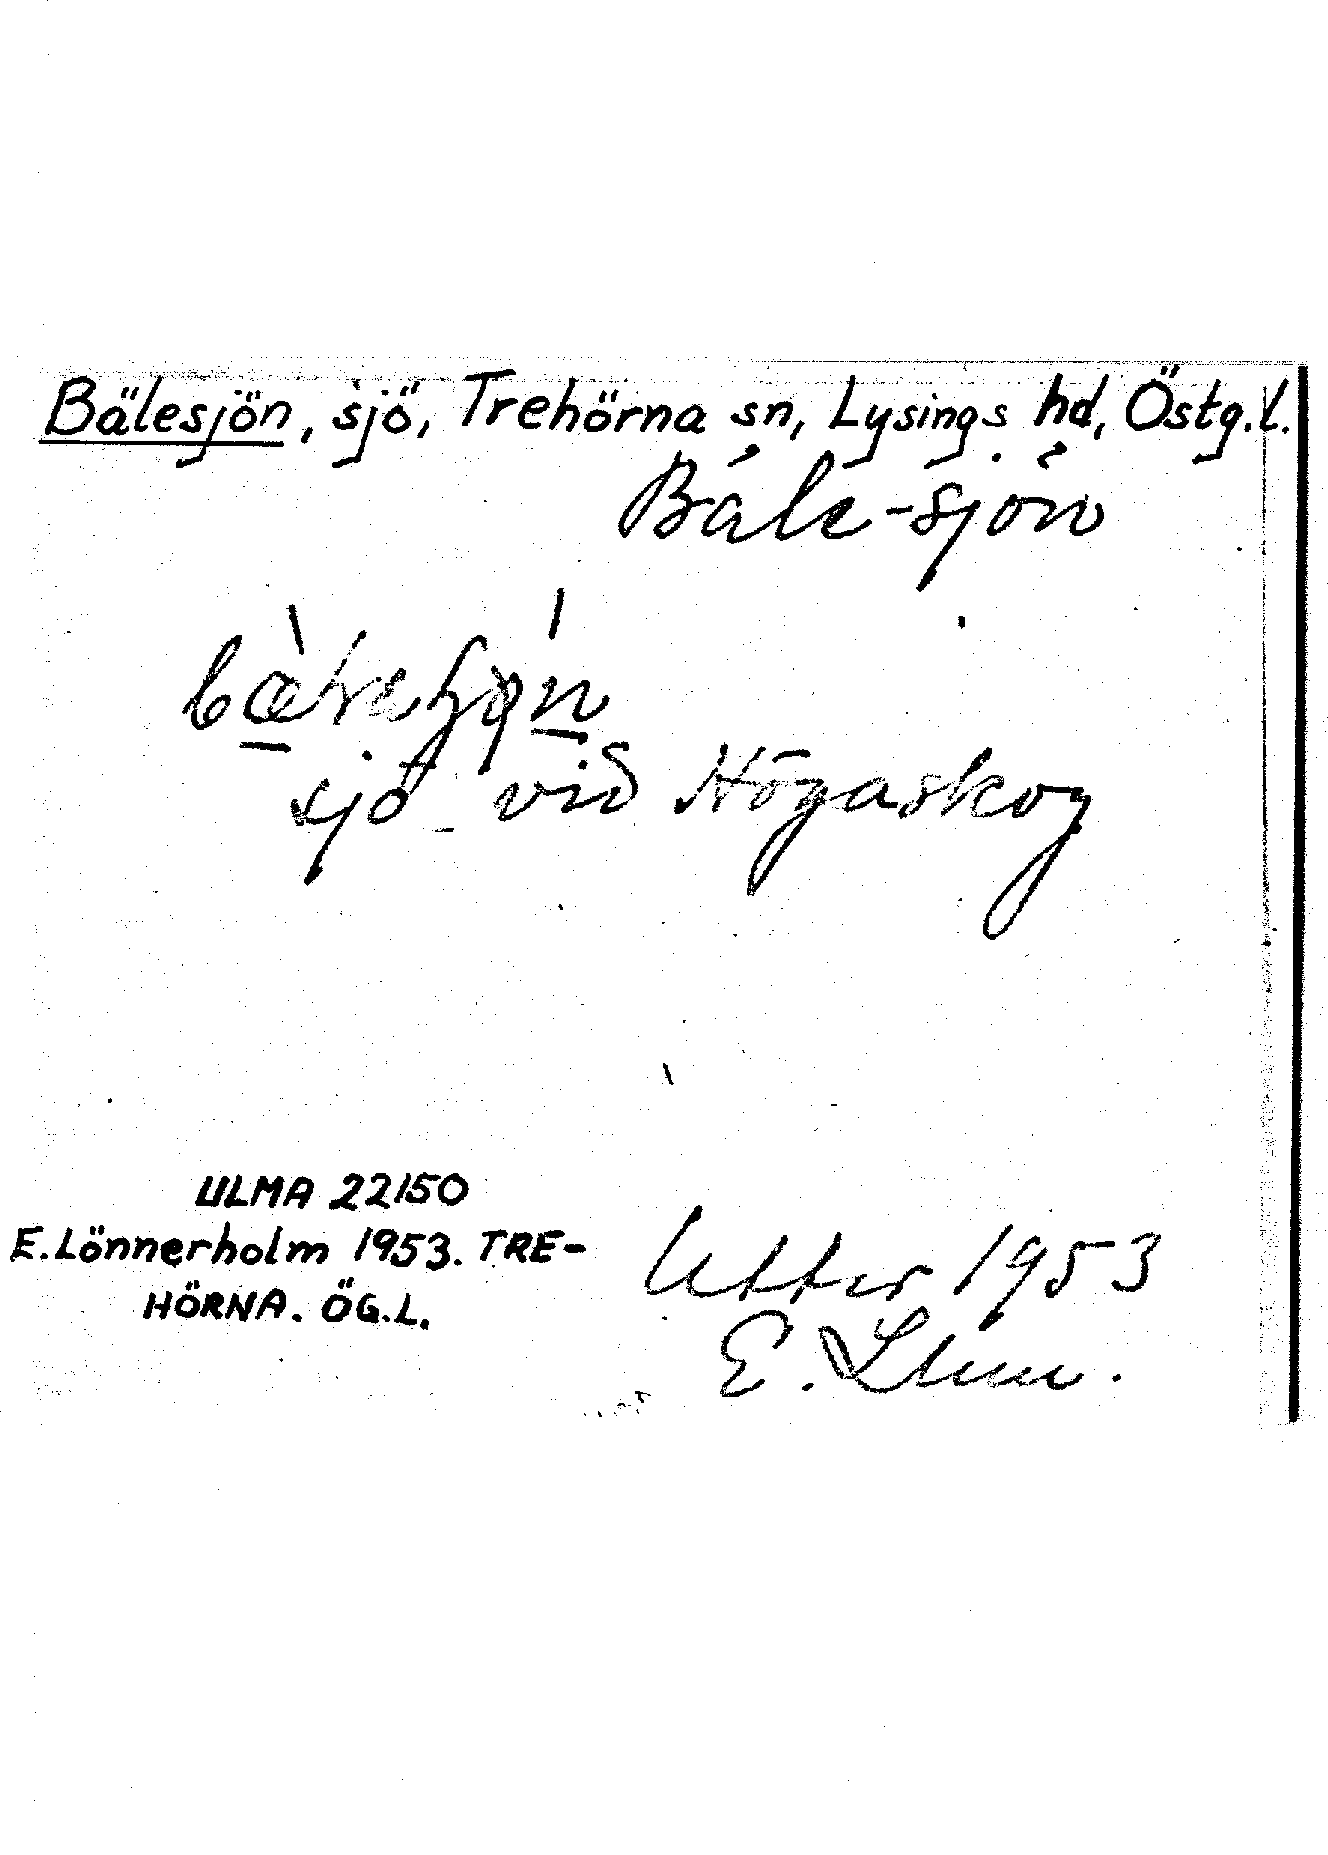 Bälesjön, sjö, Trehörna sn, Lysings hd, Östg.l.
Bäle-sjön
sjö vid Högaskog
ULMA 22150
E. Lönnerholm 1953. TRE-
HÖRNA. ÖG.L.
Utter 1953
E. Lhm.